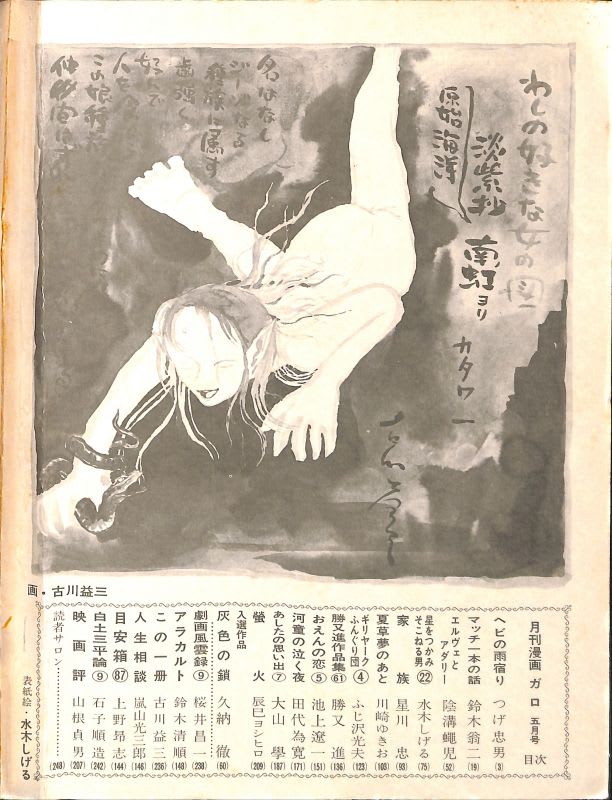 わしの好きな女の図
淡紫抄
原始海洋
南虹ヨリ
カタワ一
名はなし
人
この娘
画・古川益三
月刊漫画 ガロ 五月号 目次
ヘビの雨宿り つげ忠男 (3)
マッチ一本の話 鈴木翁二 (19)
エルヴェとアダリー 陰溝蠅児 (52)
星をつかみそこねる男㉒ 水木しげる (75)
家族 星川忠 (93)
夏草夢のあと 川崎ゆきお (103)
ギリヤークふんぐり団④ ふじ沢光夫 (123)
勝又進作品集(61) 勝又進 (136)
おえんの恋⑤ 池上遼一 (151)
河童の泣く夜 田代為寛 (171)
あしたの思い出⑦ 大山學 (187)
螢火 辰巳ヨシヒロ (209)
入選作品
灰色の鎖 久納徹 (60)
劇画風雲録⑨ 桜井昌一 (238)
アラカルト 鈴木清順 (148)
この一冊 古川益三 (236)
人生相談 嵐山光三郎 (146)
目安箱(87) 上野昻志 (144)
白土三平論⑨ 石子順造 (242)
映画評 山根貞男 (207)
読者サロン (248)
表紙絵・水木しげる